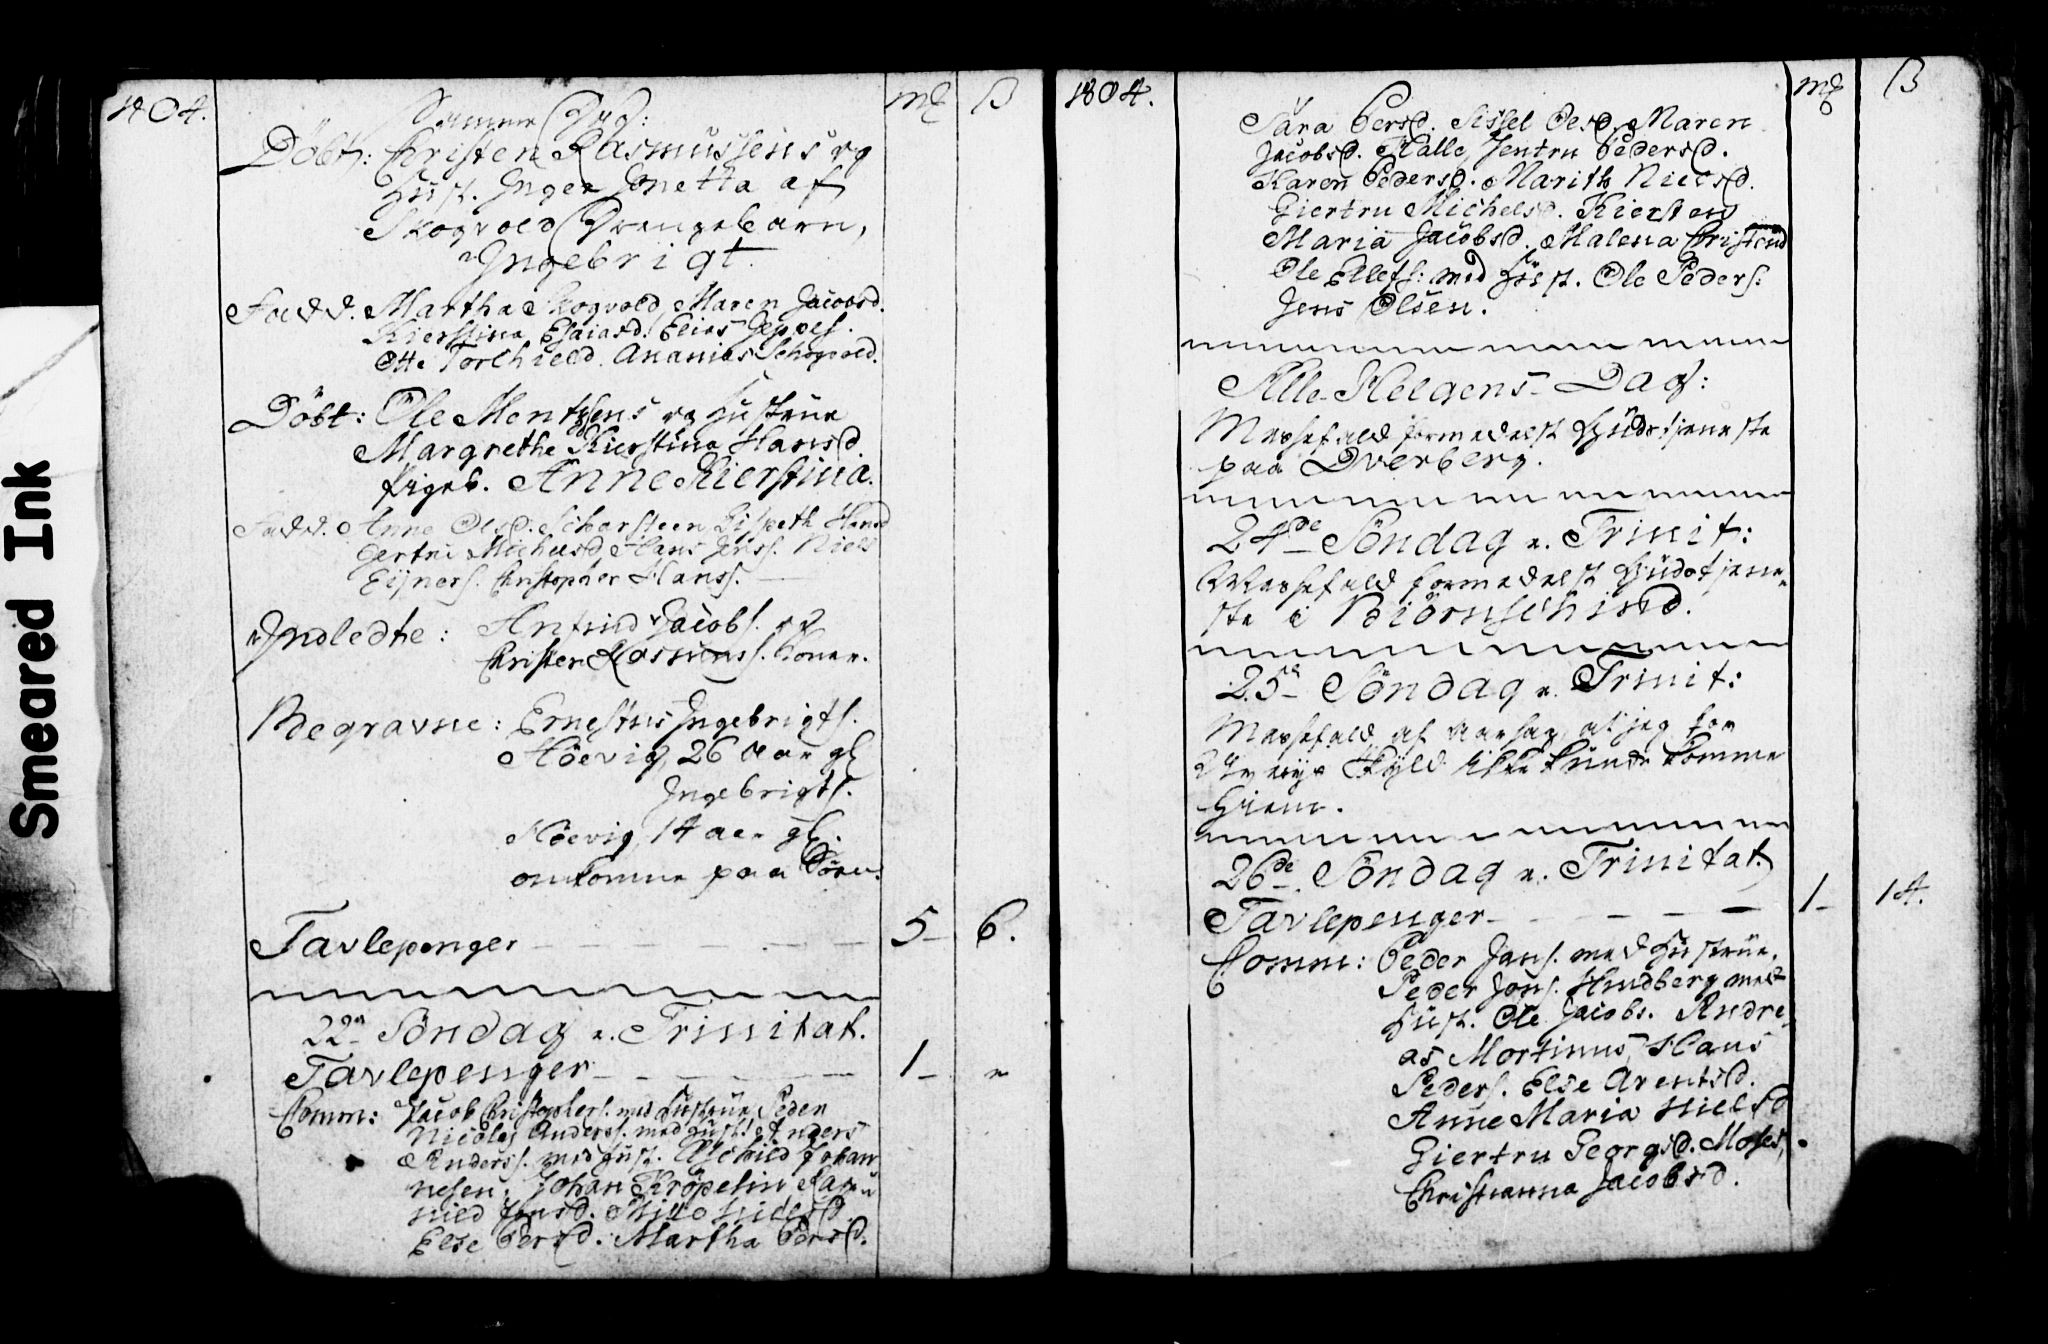 Smeared Ink
1804. mk ß
Samme Dag:
Döbt: Christen Rasmussens og
Hust. Inger Jonetta af
Skogvold Drengebarn,
Ingebrigt.
Fadd. Martha Skogvold, Maren Jacobsd.
Kierstina Esaiasd. Elias Jeppes.
Otte Torchield. Ananias Schogvold.
Döbt: Ole Mentzens og Hustrue
Margrethe Kierstina Hansd.
Pigeb. Anne Kierstina.
Fadd. Anne Olsd. Scharsteen Lispeth Hansd
Gertru Michelsd Hans Jenss. Niels
Eijners. Christopher Hanss.
Indledte: Jacobs. og
Christen Rasmuss. Kone.
Begravne: Ernestus Ingebrigts.
Höevig 26 Aar gl
Ingebrigts.
Höevig 14 aar gl.
omkomne paa Söen.
Tavlepenger 5 - 6.
22de Söndag e. Trinitat.
Tavlepenger 1 - "
Comm: Jacob Christophers. med Hustrue Peder
Nicolaj Anderss. med Hust. Anders
Anderss. med Hust. Johan
nesen. Johan Kröpelin Rag
nild Jensd. Nielsd.
Else Persd. Martha Persd.
1804. mk ß
Sara Persd. Sissel Olsd. Maren
Jacobsd. Halle, Jentru Pedersd.
Karen Pedersd. Marith Nielsd.
Giertru Michelsd. Kiersten
Maria Jacobsd. Malena Christensd
Ole Ellefs: med Hust. Ole Peders:
Jens Olsen.
Alle-Helgens-Dag:
Messefald formedelst Gudstjeneste
paa Dverberg.
24de Söndag e. Trinit:
Messefald formedelst Gudstjene-
ste i Biörnschind.
25de Söndag e. Trinit:
Messefald af Aarsag, at jeg for
Skyld ikke kunde komme
Hiem.
26de Söndag e. Trinitat.
Tavlepenger 1 - 14.
Comm: Peder Jans. med Hustrue.
Peder Jons. Hindberg med
Hust. Ole Jacobs. Andre
as Mortinus, Hans
Peders. Else Arentsd.
Anne Maria Nielsd
Giertru Georgsd. Moses,
Christianna Jacobsd.